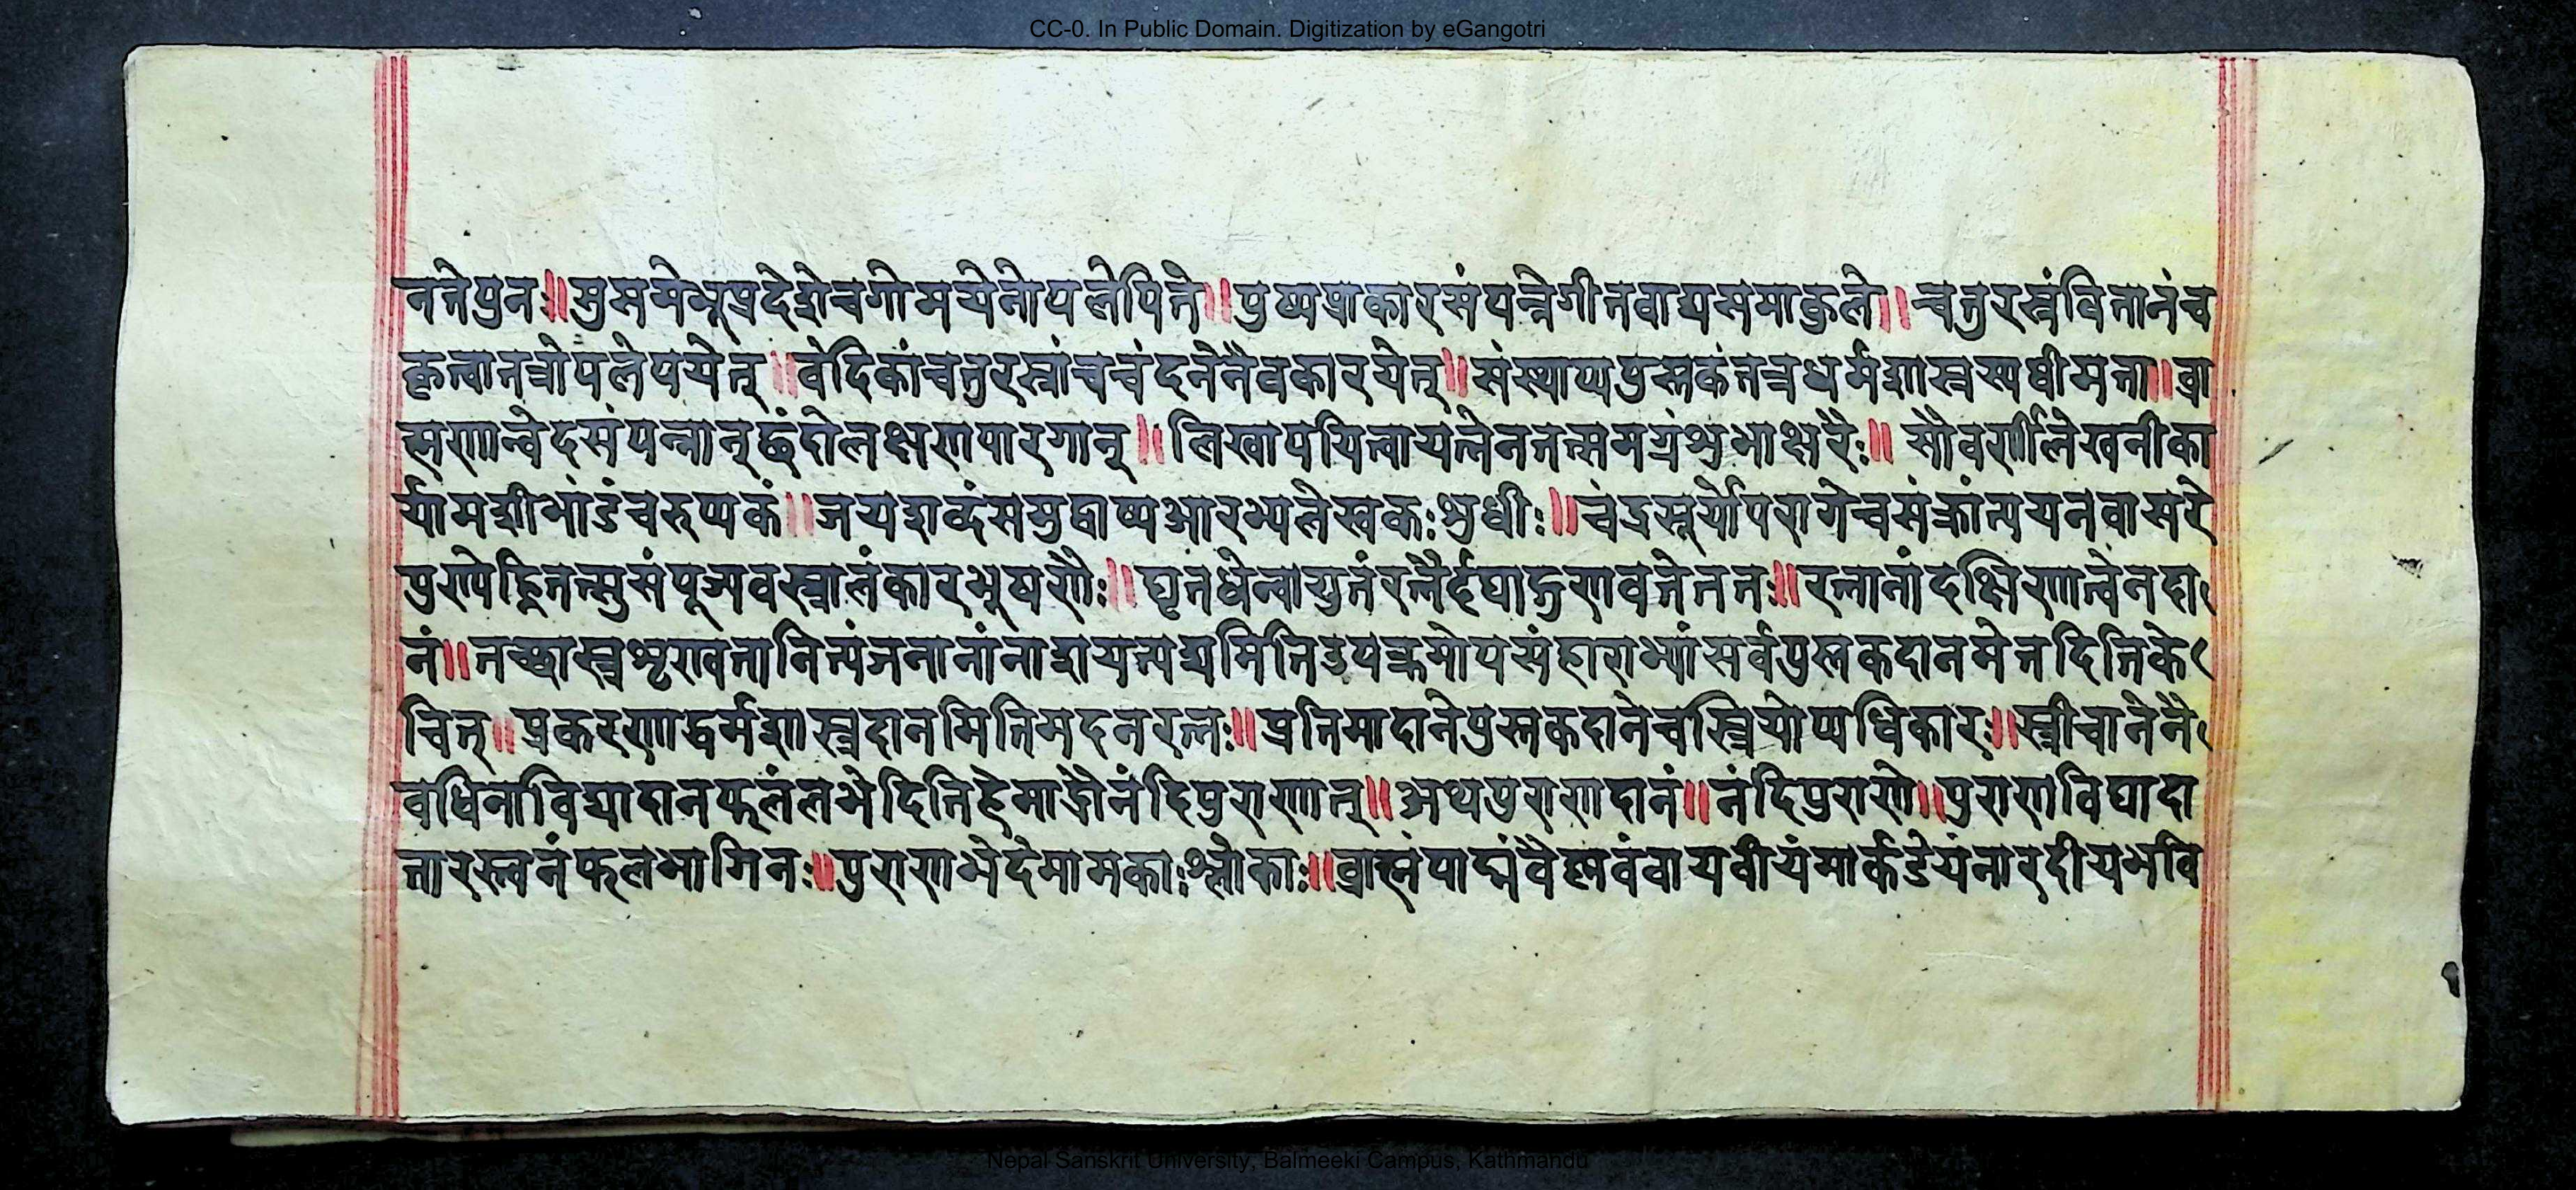 CC-0. In Public Domain. Digitization by eGangotri
नतेपुनः॥सुसमेभूप्रदेशेचगोमयेनोपलेपिते॥पुष्पप्राकारसंपन्नेगीतवाद्यसमाकुले॥चतुरस्रंवितानंच
कृत्वातत्रोपलेपयेत्॥वेदिकांचतुरस्रांचचंदनेनैवकारयेत्॥संस्थाप्यपुस्तकंतत्रधर्मशास्त्रस्यधीमता॥ब्रा
ह्मणान्वेदसंपन्नान्छंदोलक्षणपारगान्॥लिखापयित्वायत्नेनतत्समग्रंशुभाक्षरैः॥सौवर्णीलेखनीका
र्यामशीभांडंचरुप्यकं॥जयशब्दंसमुद्घोष्यआरभ्यलेखकःशुधीः॥चंद्रसूर्योपरागेचसंक्रांत्ययनवासरे
पुण्येह्नितत्सुसंपूज्यवस्त्रालंकारभूषणैः॥घृतधेन्वायुतंरत्नैर्दद्याद्गुणवतेततः॥रत्नानांदक्षिणात्वेनदा
नं॥तच्छास्त्रशृण्वतानित्यंजनानांनाशयत्यद्यमितिउपक्रमोपसंहाराभ्यांसर्वपुस्तकदानमेतदितिके
चित्॥प्रकरणाद्धर्मशास्त्रदानमितिमदनरत्नः॥प्रतिमादानेपुस्तकदानेचस्त्रियोप्यधिकारः॥स्त्रीचानेनै
वधिनाविद्यादानफलंलभेदितिहेमाद्रौनंदिपुराणात्॥अथपुराणदानं॥नंदिपुराणे॥पुराणविद्यादा
तारस्त्वनंफलभागिनः॥पुराणभेदेमामकाःश्लोकाः॥ब्राह्मंपाद्मंवैष्णवंवायवीयंमार्कडेयंनारदीयभवि
Nepal Sanskrit University, Balmeeki Campus, Kathmandu